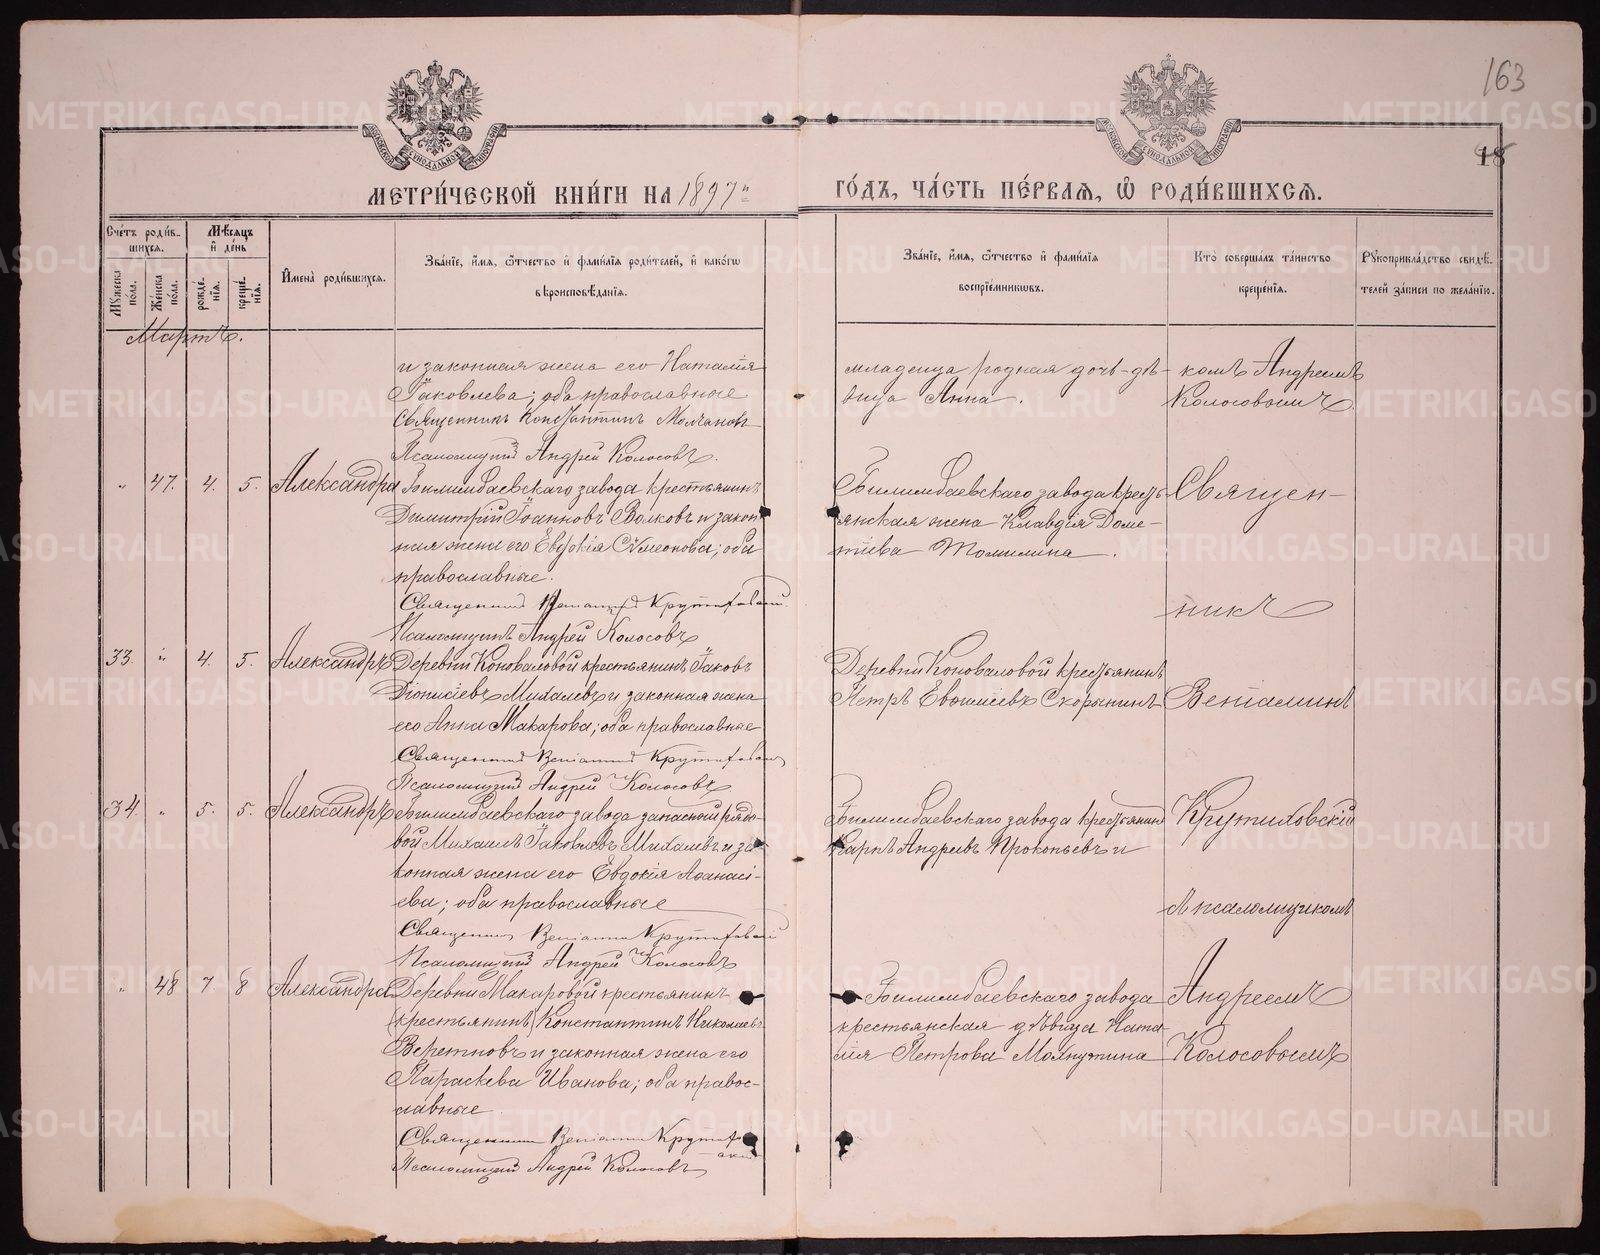 163
18
МЕТРИ́ЧЕСКОЙ КНИ́ГИ НА 1897й
ГО́ДЪ, ЧА́СТЬ ПЕ́РВАѦ, Ѡ҆ РОДИ́ВШИХСѦ.
Сче́тъ роди́в-
шихсѧ.
Мѣ́сѧцъ
и҆ де́нь
Мꙋ́жеска по́ла.
Же́нска по́ла.
рожде́-нїѧ.
креще́-нїѧ.
И҆мена̀ роди́вшихсѧ.
Зва́нїе, и҆́мѧ, ѻ҆́тчество и҆ фами́лїѧ роди́телей, и҆ како́гѡ
вѣроисповѣ́данїѧ.
Зва́нїе, и҆́мѧ, ѻ҆́тчество и҆ фами́лїѧ
воспрїе́мникѡвъ.
Кто̀ соверша́лъ та́инство
креще́нїѧ.
Рꙋкоприкла́дство свидѣ́-
телей за́писи по жела́нїю.
Мартъ.
и законная жена его Наталія
Іаковлева; оба православные
Священникъ Константинъ Молчановъ
Псаломщикъ Андрей Колосовъ.
младенца родная дочь-дѣ-
вица Анна.
комъ Андреемъ
Колосовымъ
" 47. 4. 5. Александра
Билимбаевскаго завода крестьянинъ
Димитрій Іоанновъ Волковъ и закон-
ная жена его Евдокія Сѵмеонова; оба
православные.
Священникъ Веніаминъ Крутиховскій
Псаломщикъ Андрей Колосовъ
Билимбаевскаго завода кресть-
янская жена Клавдія Доме-
тіева Томилина.
Священ-
никъ
33. " 4. 5. Александръ
Деревни Коноваловой крестьянинъ Іаковъ
Діонисіевъ Михалевъ и законная жена
его Анна Макарова; оба православные
Священникъ Веніаминъ Крутиховскій
Псаломщикъ Андрей Колосовъ
Деревни Коноваловой крестьянинъ
Петръ Евѳиміевъ Скорынинъ
Веніаминъ
34. " 5. 5. Александръ
Билимбаевскаго завода запасной рядо-
вой Михаилъ Іаковлевъ Михалевъ и за-
конная жена его Евдокія Аѳанасі-
ева; оба православные
Священникъ Веніаминъ Крутиховскій
Псаломщикъ Андрей Колосовъ
Билимбаевскаго завода крестьянинъ
Карпъ Андреевъ Прокопьевъ и
Крутиховскій
съ псаломщикомъ
" 48 7. 8 Александра
Деревни Макаровой крестьянинъ
(крестьянинъ) Константинъ Николаевъ
Веретновъ и законная жена его
Параскева Иванова; оба правос-
лавные
Священникъ Веніаминъ Крутиховскій
Псаломщикъ Андрей Колосовъ
Билимбаевскаго завода
крестьянская дѣвица Ната-
лія Петрова Махнутина
Андреемъ
Колосовымъ